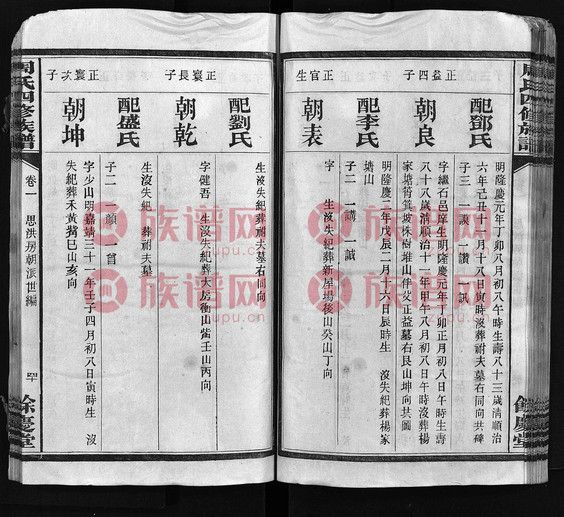 周氏四修族譜
餘慶堂
正益四子
配鄧氏
明隆慶元年丁卯八月初八午時生壽八十三歲清順治
六年己丑十一月十八日寅時沒葬祔夫墓右同向共碑
子三 一謨 一讚 一訊
朝良
字繼石邑庠生明隆慶元年丁卯正月初八日午時生壽
八十八歲清順治十一年甲午八月初八日午時沒葬楊
家塘
坡株樹堆山伴父正益墓右艮山坤向共圖
正官生
配李氏
明隆慶二年戊辰二月十六日辰時生 沒失紀葬楊家
塘山
子二 一講 一誠
朝表
字 生沒失紀葬新屋場後山癸山丁向
正寰長子
配劉氏
生沒失紀葬祔夫墓右同向
朝乾
字健吾 生沒失紀葬大房衝山
壬山丙向
正寰次子
配盛氏
生沒失紀 葬祔夫墓
子二 一顔 一首
朝坤
字少山明嘉靖三十一年壬子四月初八日寅時生 沒
失紀葬禾黄
巳山亥向
周氏四修族譜
卷一
思洪房朝派世編
餘慶堂
族谱网
zupu.cn
族谱网
zupu.cn
族谱网
zupu.cn
族谱网
zupu.cn